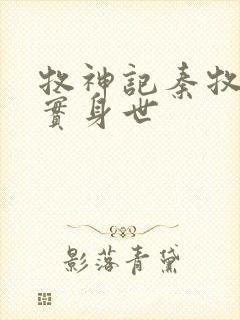 牧神記秦牧
實身世
影落青黛